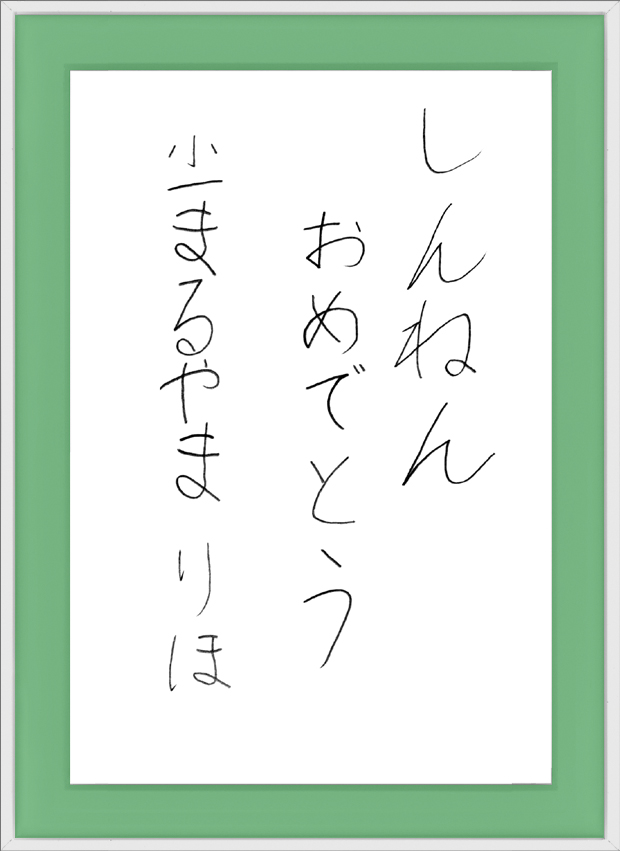 しんねん
おめでとう
小一まるやまりほ